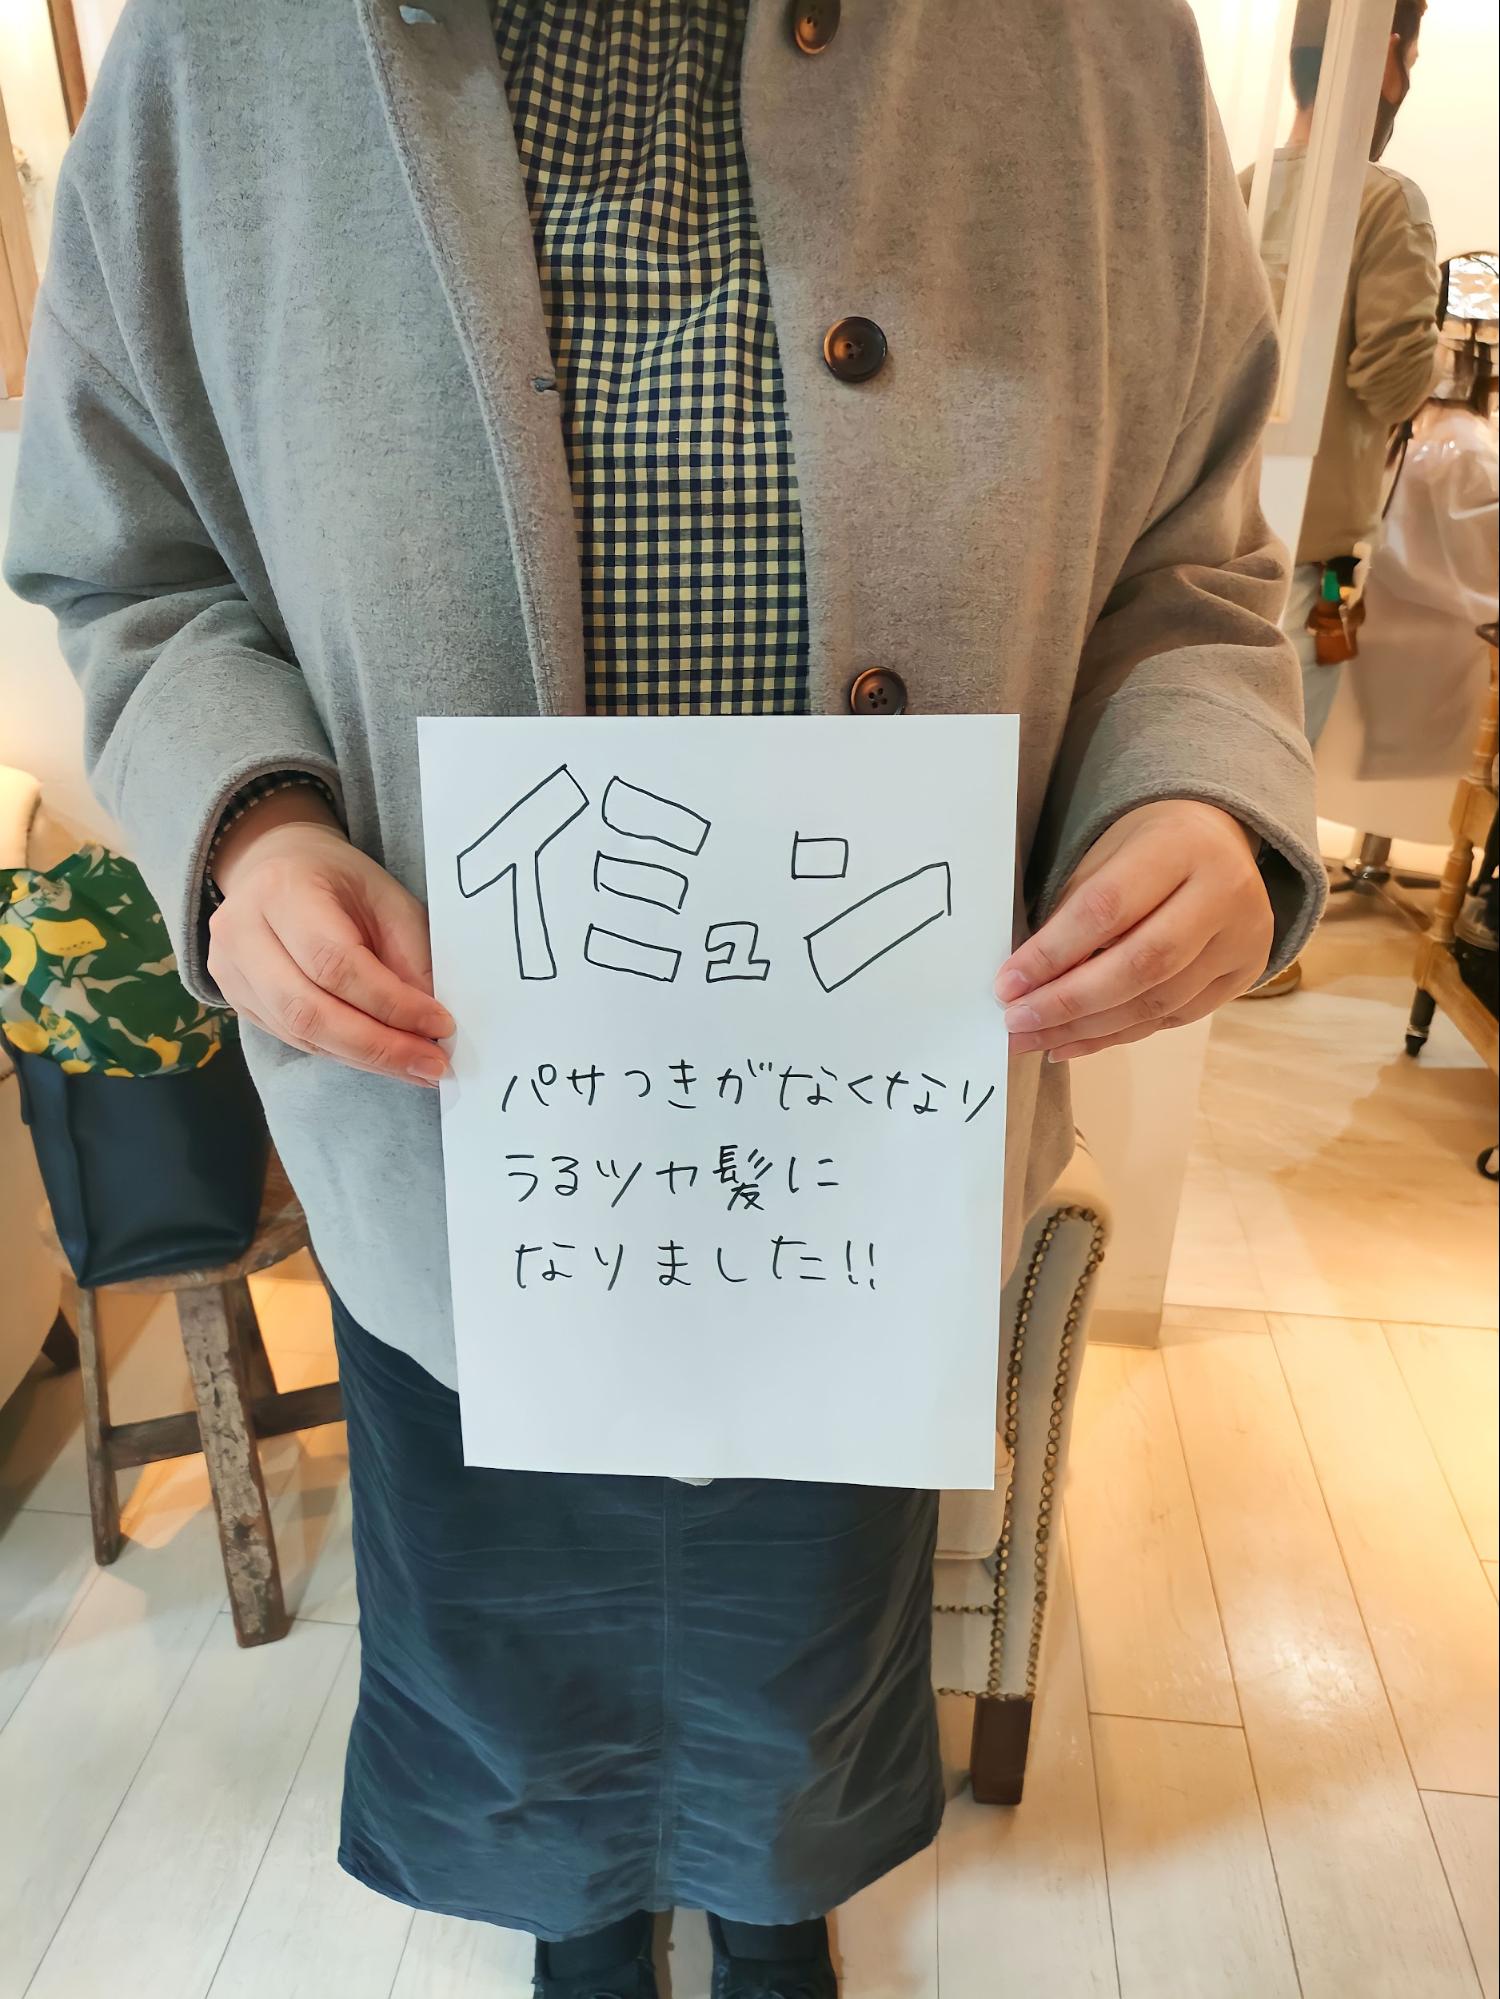 イミュン
パサつきがなくなり
うるツヤ髪に
なりました!!